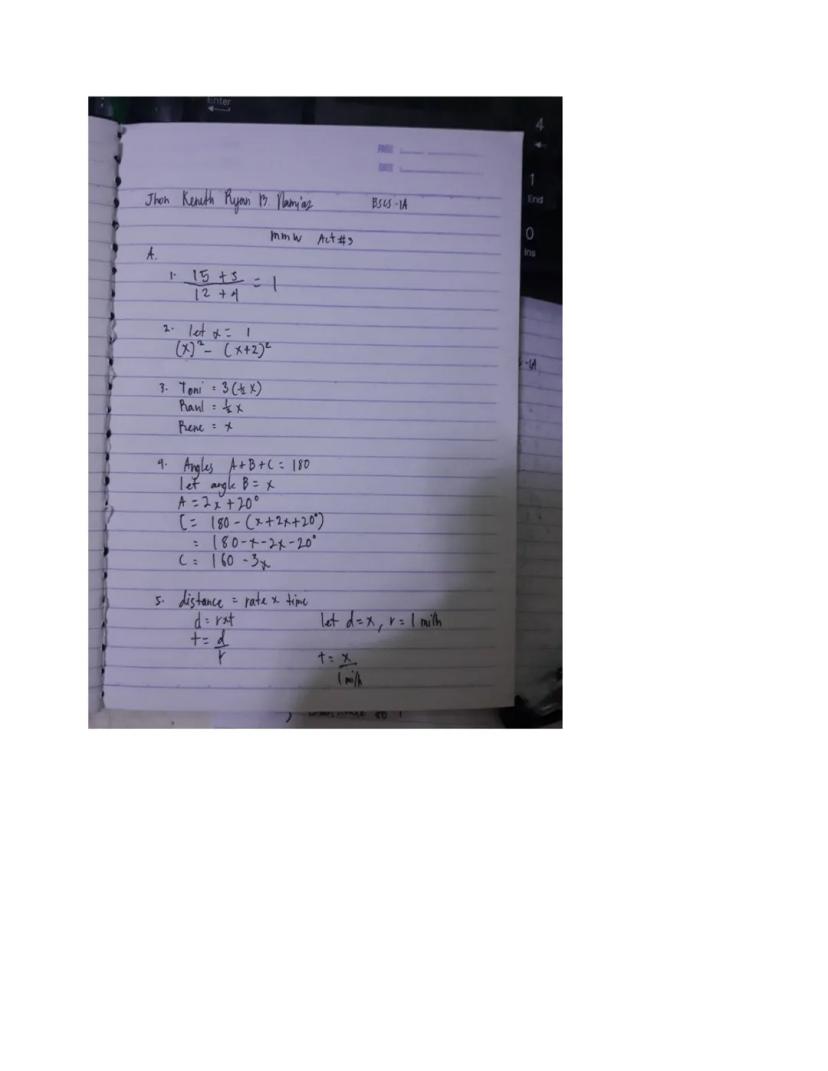 Enter
4
PAGE
DATE
1
End
Jhon Keneth Ryan B. BSCS-1A
0
Ins
MMW Act #3
A.
1. 15 + 5 / 12 + 4 = 1
2. let x = 1
(x)² - (x+2)²
-1A
3. Toni = 3(½x)
Raul = ½x
Rene = x
4. Angles A+B+C = 180
let angle B = x
A = 2x + 20°
C = 180 - (x+2x+20°)
= 180-x-2x-20°
C = 160 - 3x
5. distance = rate x time
d = rxt let d=x, r = 1 mi/h
t = d / r
t = x / 1 mi/h